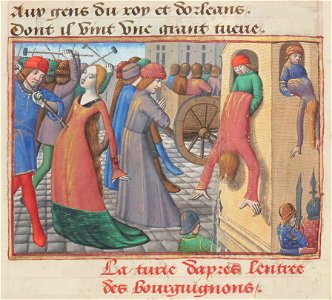 Aux gens du roy et dorleans.
Dont il vint vne grant tuerie.
La turie dapres lentree
des bourguignons.